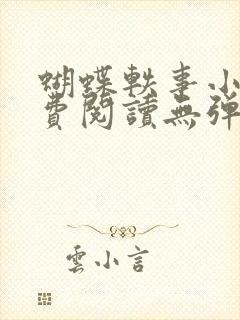 蝴蝶軼事小
費閱讀無彈
雲小言